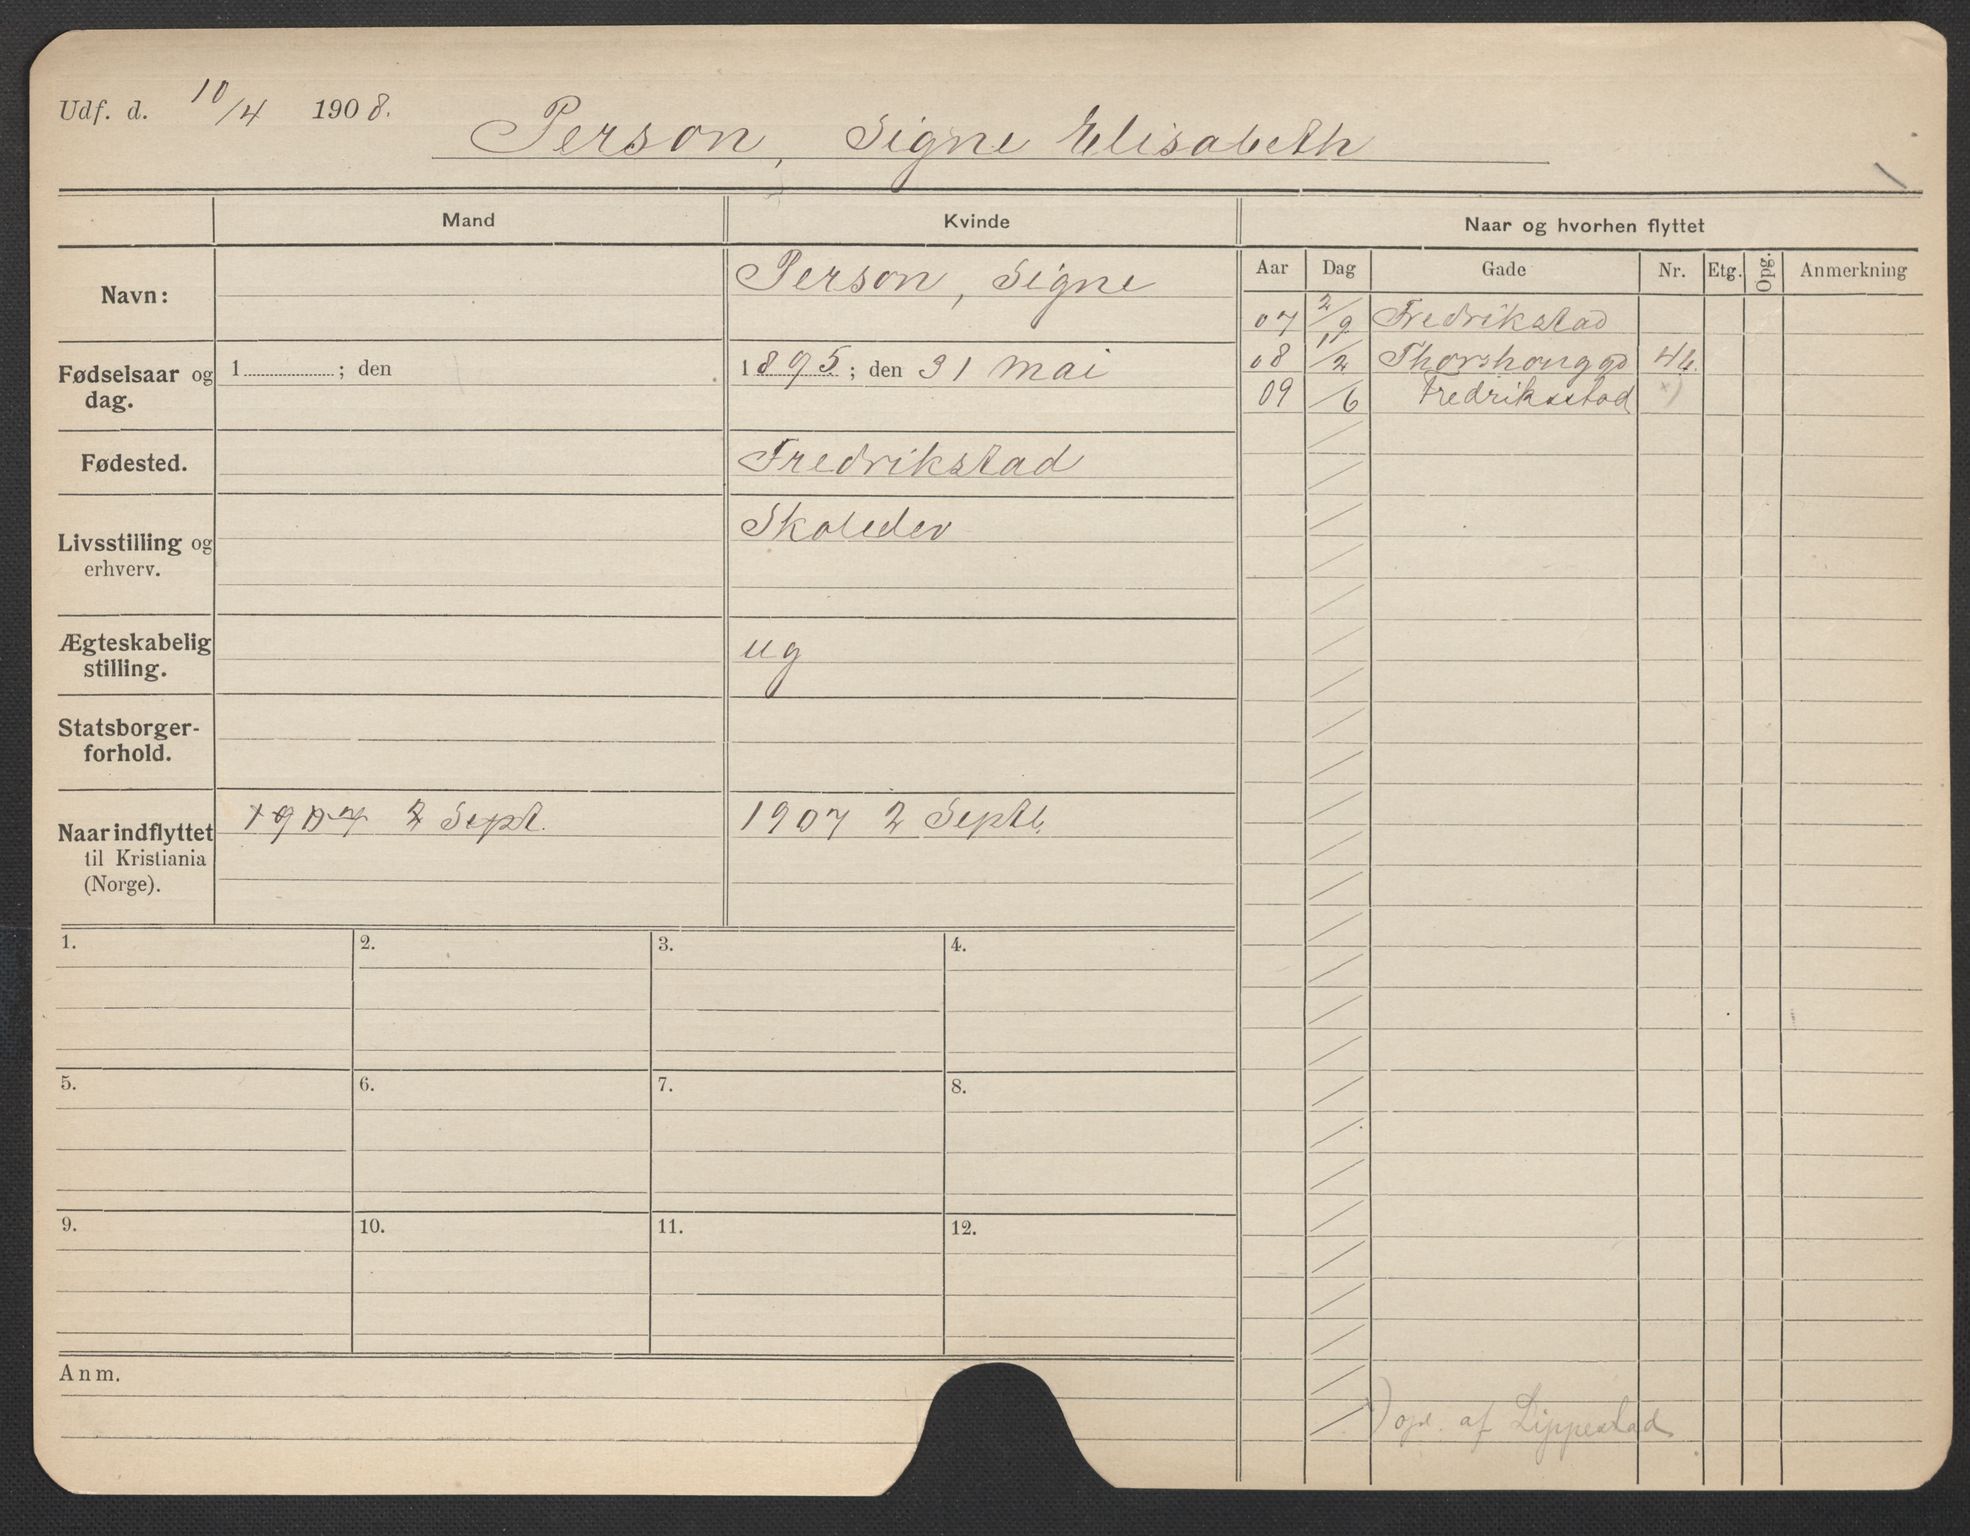 Udf. d. 10/4 1908.
Person, Signe Elisabeth
Mand
Kvinde
Naar og hvorhen flyttet
Navn:
Person, Signe
Fødselsaar og
dag.
1 ; den
1895 ; den 31 Mai
Fødested.
Fredrikstad
Livsstilling og
erhverv.
Skoleelev
Ægteskabelig
stilling.
ug
Statsborger-
forhold.
Naar indflyttet
til Kristiania
(Norge).
1907 2 Sept.
1907 2 Septb.
Aar Dag Gade Nr. Etg. Opg. Anmerkning
07 2/9 Fredrikstad
08 1/2 Thorshouggd 44.
09 /6 Fredriksstad x)
1. 2. 3. 4.
5. 6. 7. 8.
9. 10. 11. 12.
Anm.
x) opl. af Lippestad